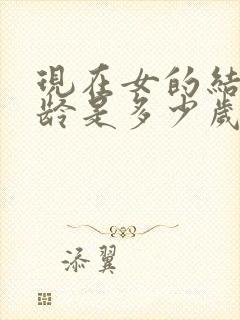 現在女的結
齡是多少歲
添翼